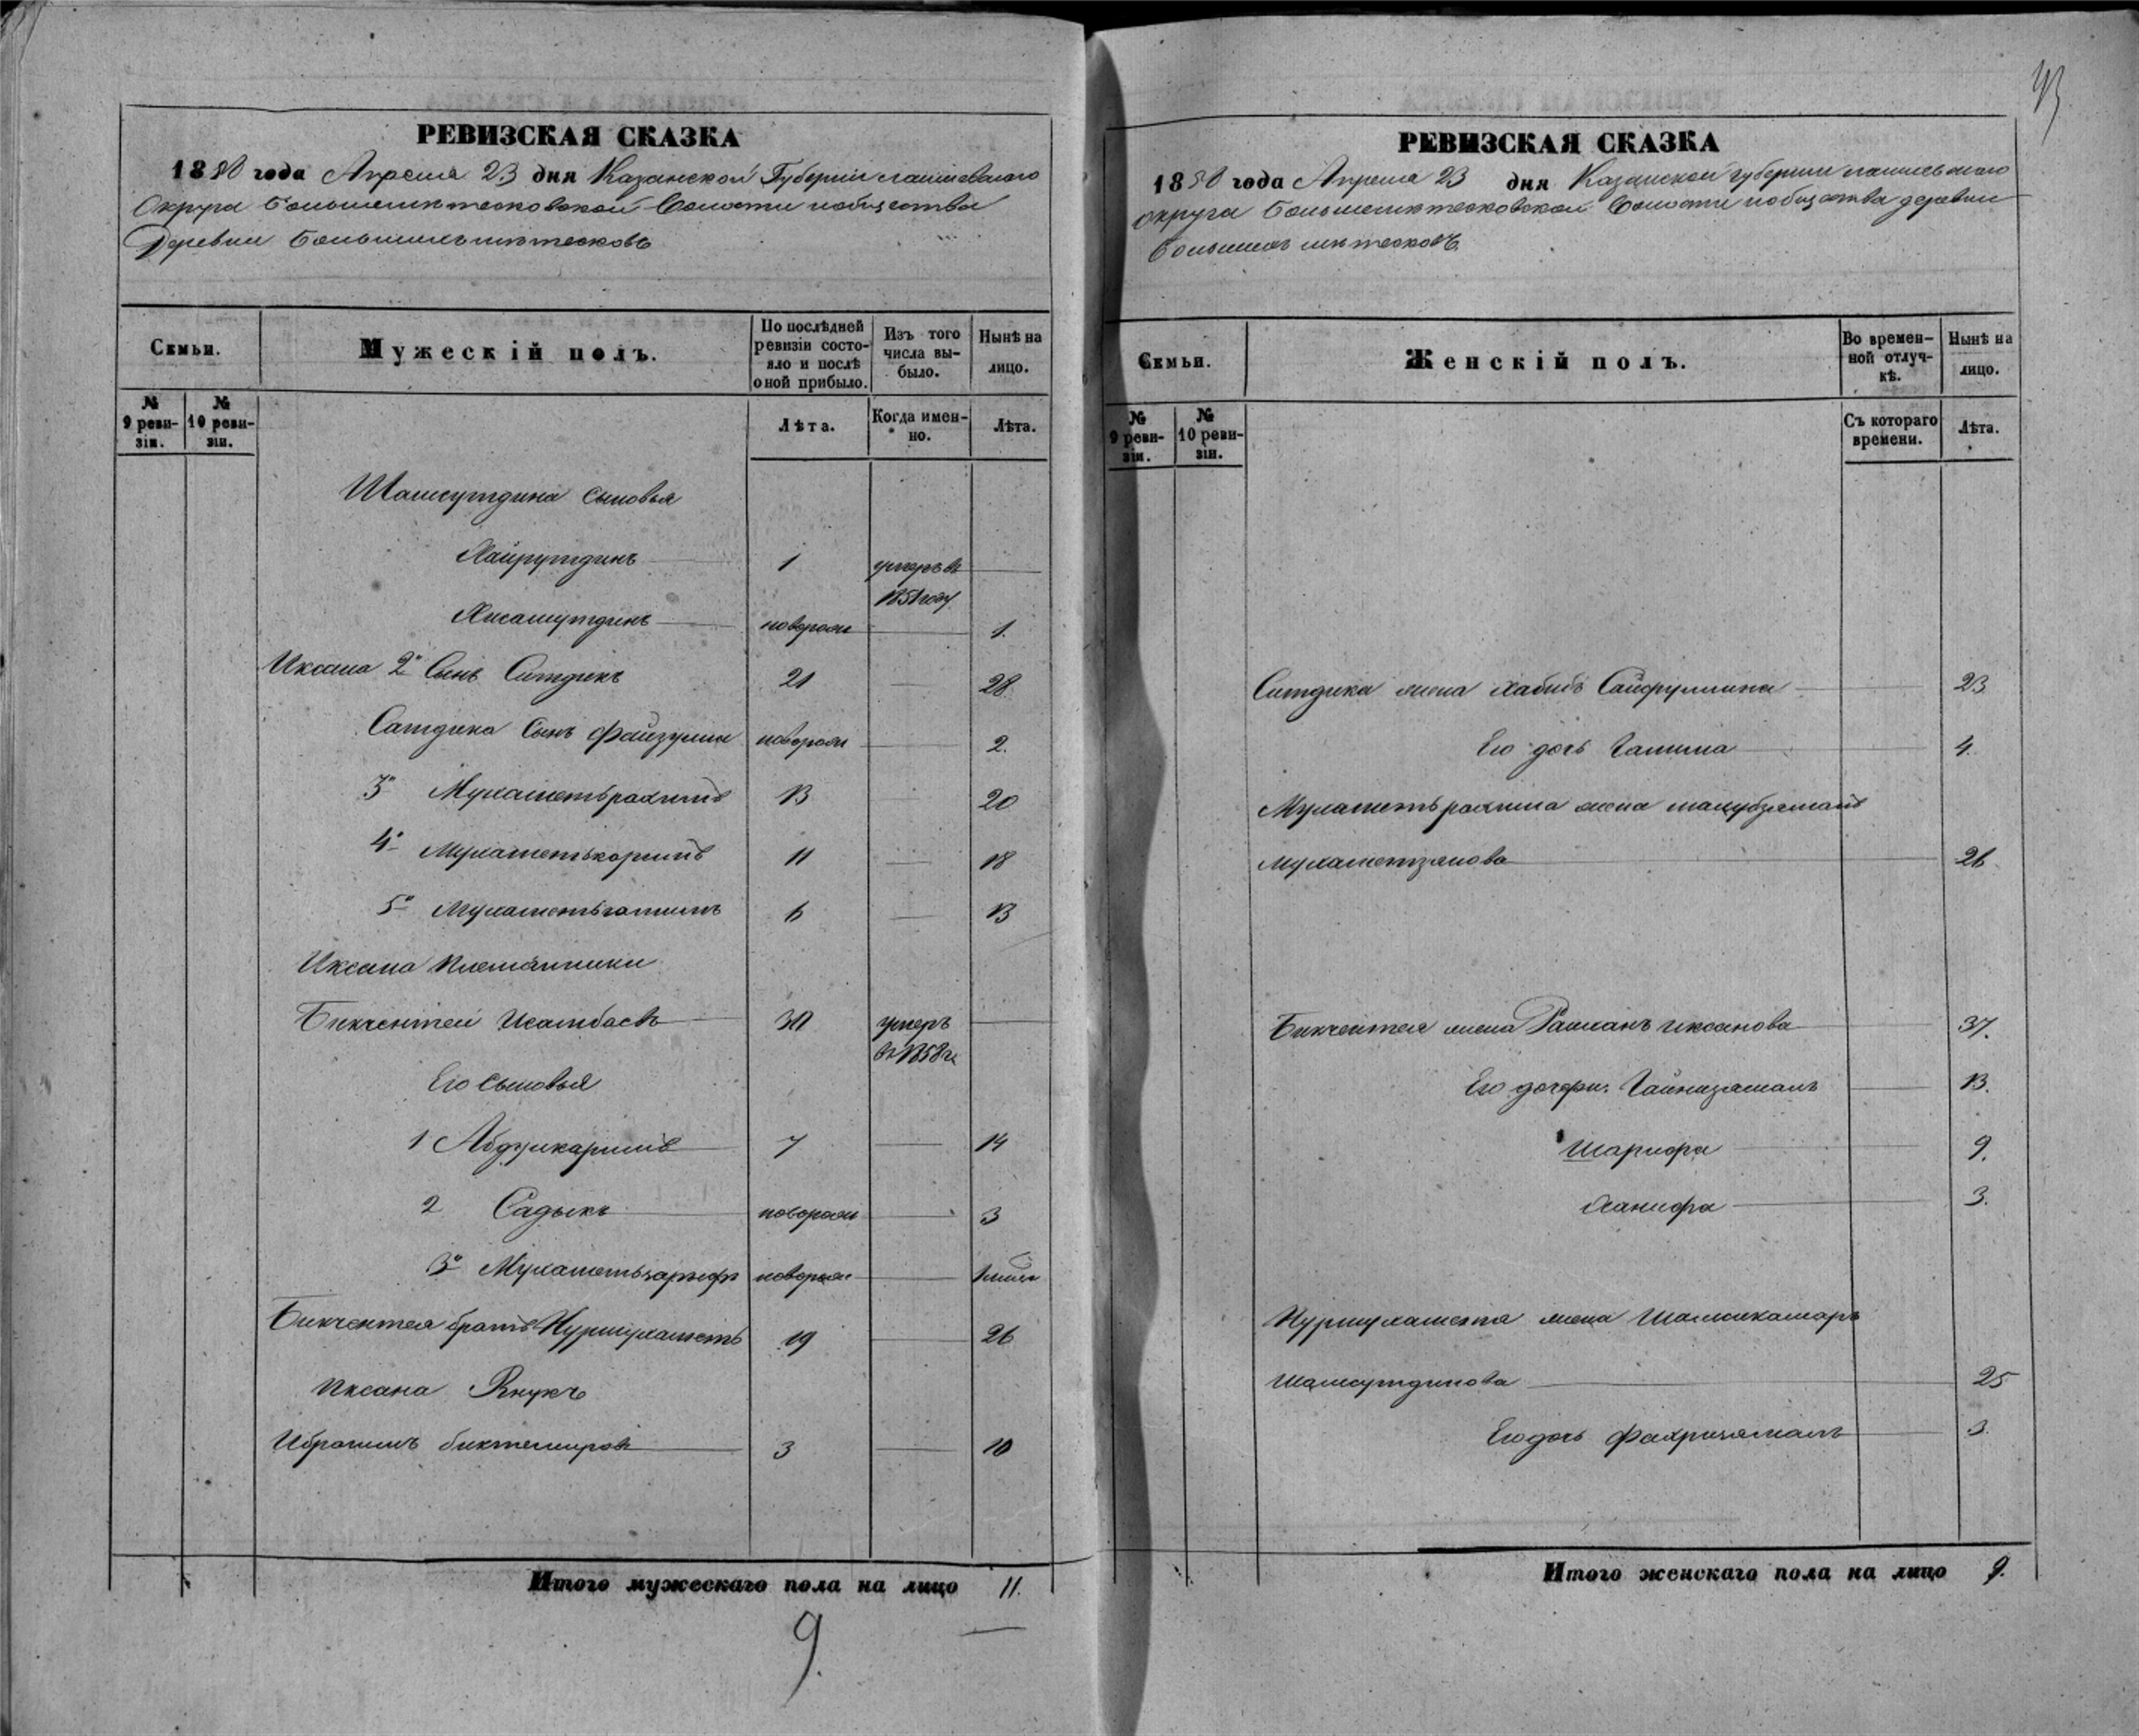 РЕВИЗСКАЯ СКАЗКА
1850 года Апреля 23 дня Казанской Губернии Лаишевскаго
Округа Волости и общества
Деревни Большихъ
Семьи.
Мужескій полъ.
По послѣдней ревизіи состояло и послѣ оной прибыло.
Изъ того числа выбыло.
Нынѣ на лицо.
№ 9 ревизіи.
№ 10 ревизіи.
Лѣта.
Когда именно.
Лѣта.
Шамсутдина сыновья
Хайрутдинъ 1 умеръ въ
1851 году
Хисамутдинъ новорож 1.
Иксана 2й Сынъ Ситдикъ 21 28
Ситдика Сынъ Файзулла новорож 2.
3й Мухаметьрахимъ 13 20
4й Мухаметькаримъ 11 18
5й Мухаметьгалимъ 6 13
Иксана племянники
Бикчентей Исянбаевъ 30 умеръ
въ 1858 г.
Его сыновья
1 Абдулкаримъ 7 14
2 Садыкъ новорож 3
3й Мухаметьзарифъ новорож
Бикчентея братъ Нурмухаметь 19 26
Иксана Внукъ
Ибрагимъ Биктемировъ 3 10
Итого мужескаго пола на лицо 11.
9.
РЕВИЗСКАЯ СКАЗКА
1850 года Апреля 23 дня Казанской губернии Лаишевскаго
округа Волости и общества деревни
Большихъ
Семьи.
Женскій полъ.
Во временной отлучкѣ.
Нынѣ на лицо.
№ 9 ревизіи.
№ 10 ревизіи.
Съ котораго времени.
Лѣта.
Ситдика жена Хабиба Сайфуллина 23
Его дочь Галима 4.
Мухаметьрахима жена
Мухаметзянова 26
Бикчентея жена Иксанова 37.
Его дочери. Гайнизямалъ 13.
Шарифа 9.
Ханифа 3.
Нурмухаметя жена Шамсикамаръ
Шамсутдинова 25
Его дочь Фахризямалъ 3.
Итого женскаго пола на лицо 9.